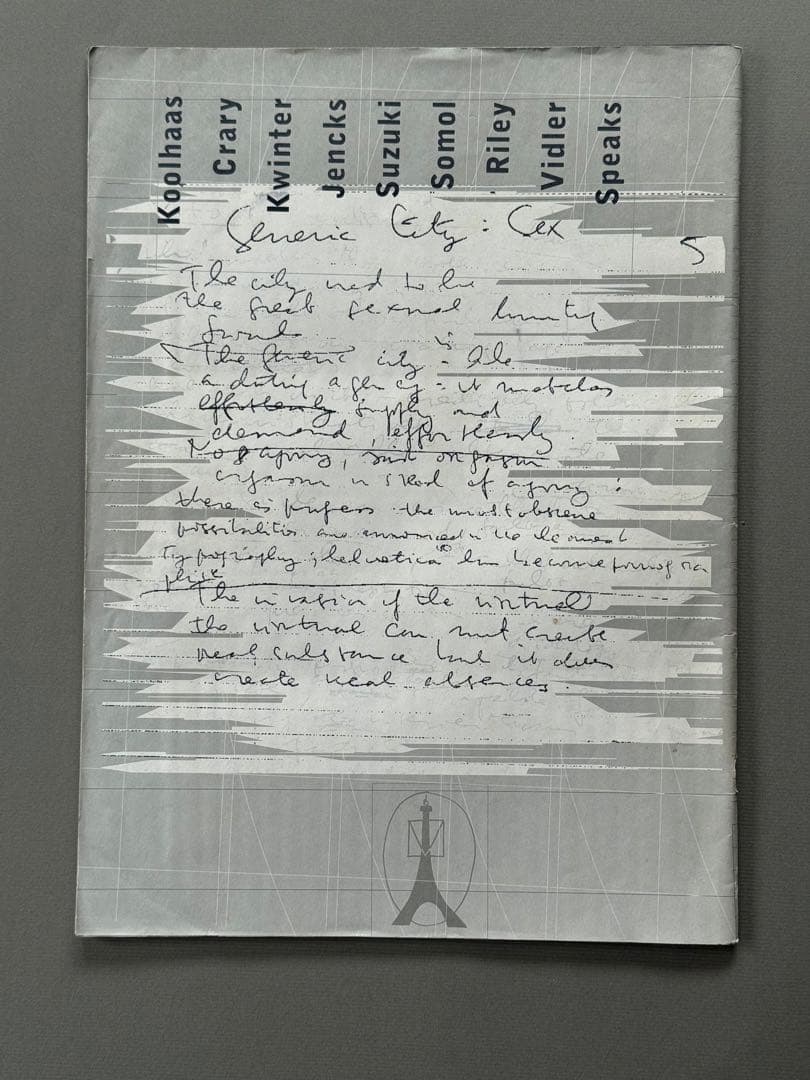 Koolhaas
Crary
Kwinter
Jencks
Suzuki
Somol
Riley
Vidler
Speaks
Generic City : Sex
5
The city used to be
the great sexual hunting
ground
The Generic city is like
a dating agency : it matches
effortlessly supply and
demand, effortlessly.
No agony, just orgasm
orgasm instead of agony :
there is progress the most obscene
possibilities are announced in the cleanest
typography ; helvetica has become pornogra
phic
The invasion of the virtual
the virtual can not create
real substance but it does
create real absences.